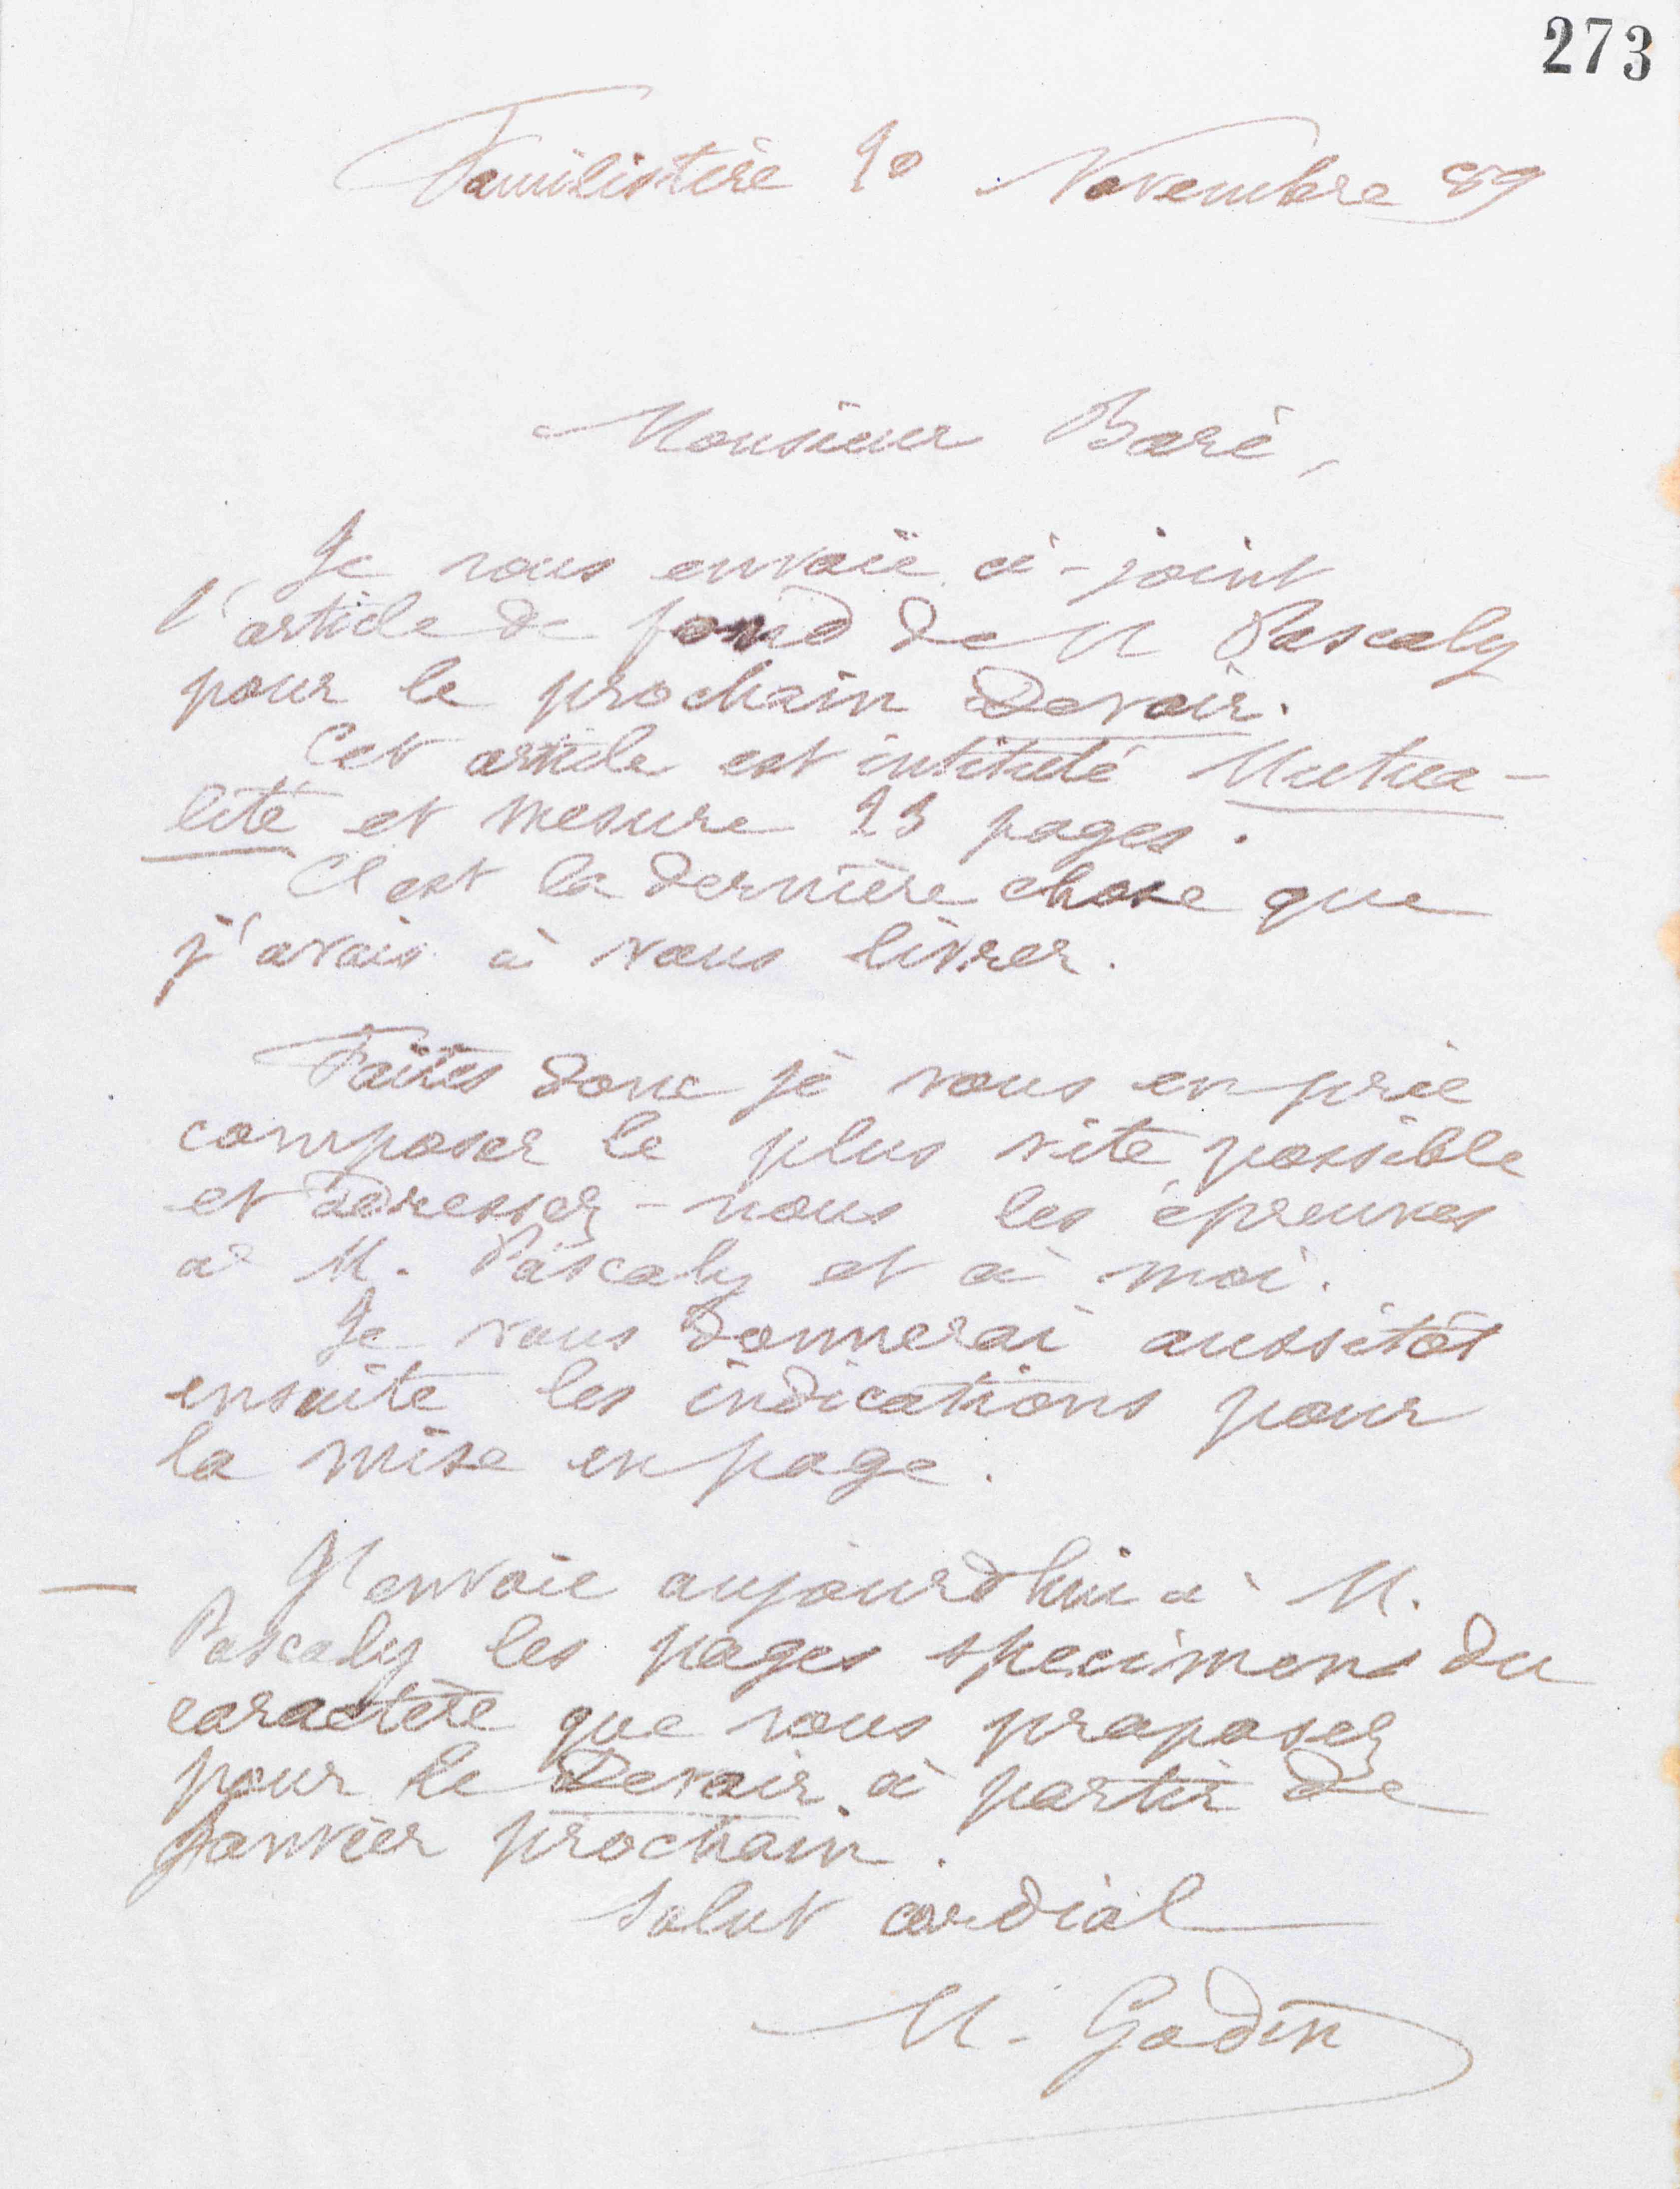 273
Familistère 10 Novembre 89
Monsieur Baré,
Je vous envoie ci-joint
l'article de fond de M Pascaly
pour le prochain Devoir.
Cet article est intitulé Mutua-
lité et mesure 13 pages.
C'est la dernière chose que
j'avais à vous livrer.
Faites donc je vous en prie
composer le plus vite possible
et adressez-nous les épreuves
à M. Pascaly et à moi.
Je vous donnerai aussitôt
ensuite les indications pour
la mise en page.
— J'envoie aujourd'hui à M.
Pascaly les pages specimens du
caractère que vous proposez
pour le Devoir à partir de
Janvier prochain.
Salut cordial
M. Godin